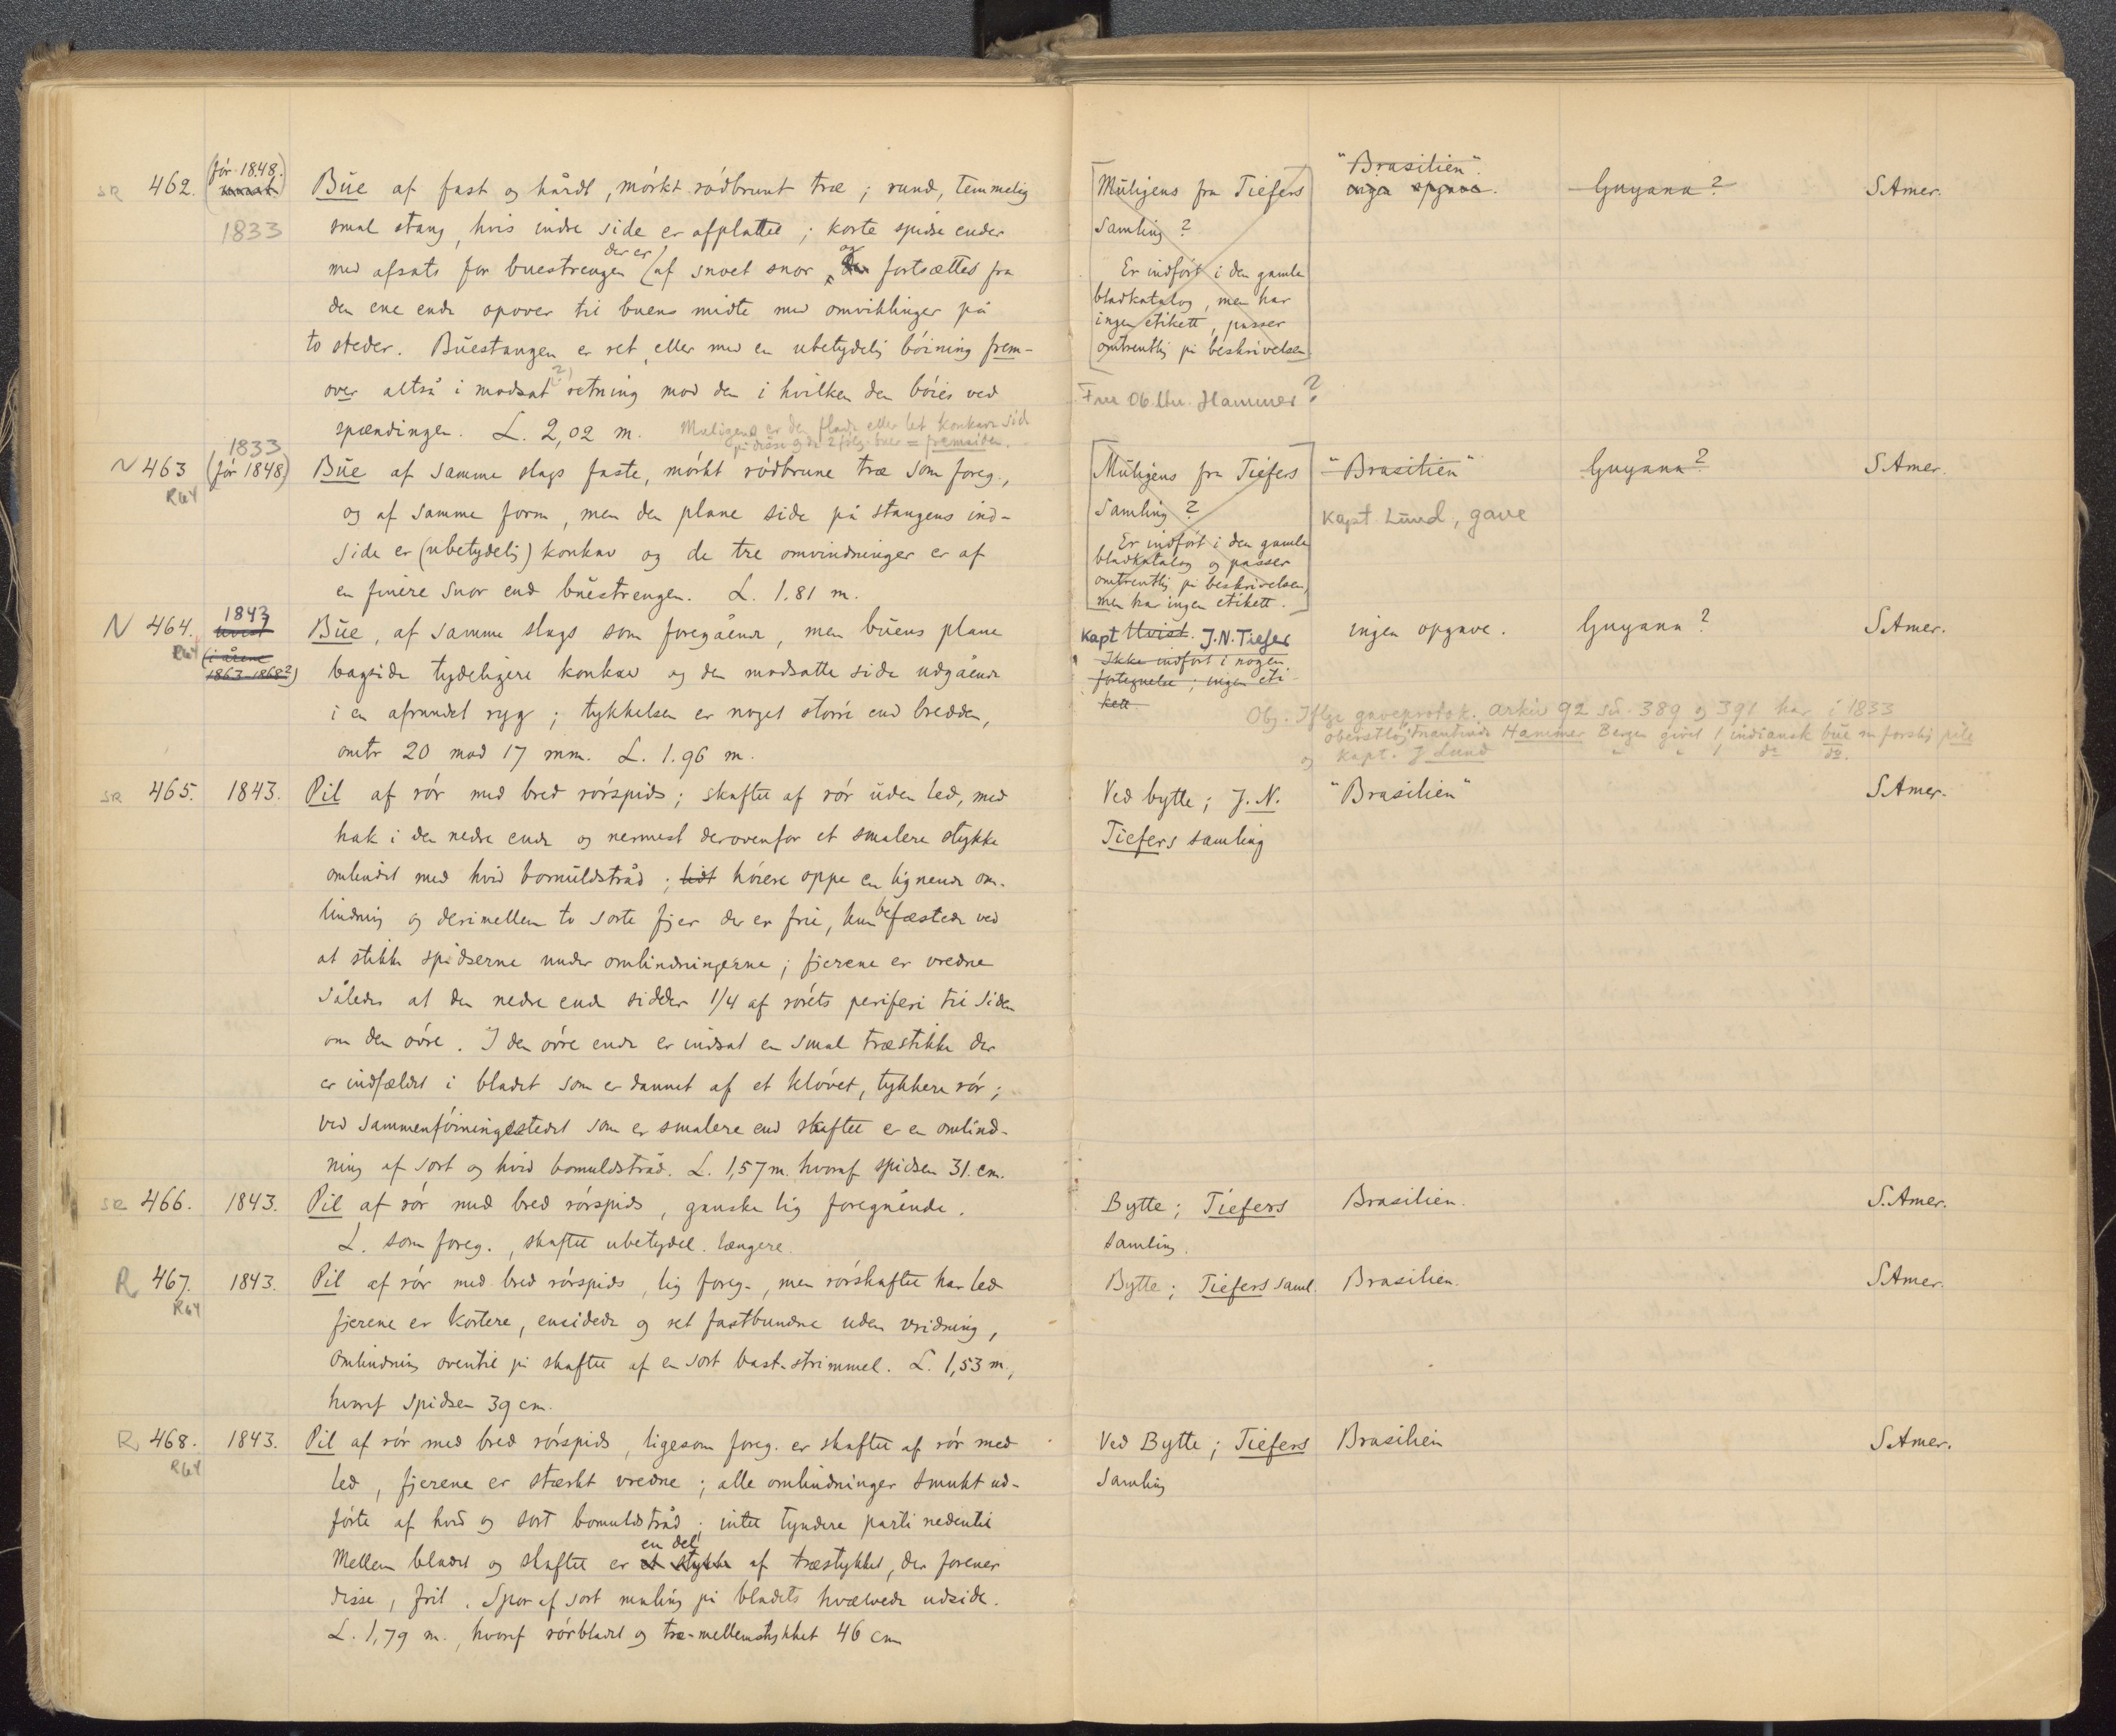 SR 462. (før 1848.) Būe af fast og hårdt, mørkt rødbrunt træ; rund, temmelig
1833 smal stang, hvis indre side er afplattet; korte spidse ender
med afsats for buestrengen der er af snoet snor, og fortsættes fra
den ene ende opover til buens midte med omviklinger på
to steder. Būestangen er ret, eller med en ubetydelig bøining frem-
over altså i modsat (?) retning mod den i hvilken den bøies ved
spændingen. L. 2,02 m. Muligens er den flade eller let konkave side
på disse og de 2 følg. buer = fremsiden.
1833
N 463 (før 1848) Būe af samme slags faste, mørkt rødbrune træ som foreg.,
R64 og af samme form, men den plane side på stangens ind-
side er (ubetydelig) konkav og de tre omvindninger er af
en finere snor end būestrengen. L. 1.81 m.
1843
N 464. uvist Būe, af samme slags som foregående, men būens plane
R64 (i årene
1863-1868?) bagside tydeligere konkav og den modsatte side udgående
i en afrundet ryg; tykkelsen er noget større end bredden,
omtr 20 mod 17 mm. L. 1.96 m.
SR 465. 1843. Pil af rør med bred rørspids; skaftet af rør ūden led, med
hak i den nedre ende og nermest derovenfor et smalere stykke
omlindet med hvid bomūldstråd; lidt høiere oppe en lignende om-
lindning og derimellem to sorte fjer der er frie, kun befæstede ved
at stikke spidserne under omlindningerne; fjerene er vredne
således at den nedre ende sidder 1/4 af rørets periferi til siden
om den øvre. I den øvre ende er indsat en smal træstikke der
er indfældet i bladet som er dannet af et kløvet, tykkere rør;
ved sammenføiningsstedet som er smalere end skaftet er en omlind-
ning af sort og hvid bomuldstråd. L. 1,57 m. hvoraf spidsen 31. cm.
SR 466. 1843. Pil af rør med bred rørspids, ganske lig foregående.
L. som foreg., skaftet ubetydel. længere.
R 467. 1843. Pil af rør med bred rørspids, lig foreg., men rørskaftet har led
R64 fjerene er kortere, ensidede og ret fastbundne uden vridning,
omlindning oventil på skaftet af en sort bast-strimmel. L. 1,53 m,
hvoraf spidsen 39 cm.
R 468. 1843. Pil af rør med bred rørspids, ligesom foreg. er skaftet af rør med
R64 led, fjerene er stærkt vredne; alle omlindninger smukt ud-
førte af hvid og sort bomuldstråd; intet tyndere parti nedentil
en del
Mellem bladet og skaftet er et stykke af træstykket, der forener
disse, frit. Spor af sort maling på bladets hvælvede udside.
L. 1,79 m., hvoraf rørbladet og træ-mellemstykket 46 cm
"Brasilien".
Mūligens fra Tiefers ingen opgave. Guyana? S.Amer.
Samling?
Er indført i den gamle
bladkatalog, men har
ingen etikett, passer
omtrentlig på beskrivelsen
Frue Ob.ltn. Hammer?
Mūligens fra Tiefers "Brasilien" Guyana? S.Amer.
Samling? Kapt Lund, gave
Er indført i den gamle
bladkatalog og passer
omtrentlig på beskrivelsen,
men har ingen etikett.
Kapt Uvist. J.N. Tiefer ingen opgave. Guyana? S.Amer.
Ikke indført i nogen
fortegnelse; ingen eti-
kett
Obs: Iflge gaveprotok. arkiv 92 sd. 389 og 391 har i 1833
oberstløjtnantinde Hammer Bergen givet 1 indiansk bue m forskj. pile
og Kapt. J Lund " " 1 do do.
Ved bytte; J.N. "Brasilien" S.Amer.
Tiefers samling
Bytte; Tiefers Brasilien. S.Amer.
samling.
Bytte; Tiefers saml. Brasilien. S.Amer.
Ved Bytte; Tiefers Brasilien S.Amer.
Samling